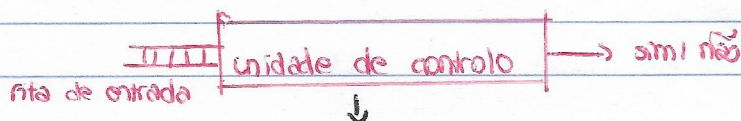 unidade de controlo → sim/não
fita de entrada